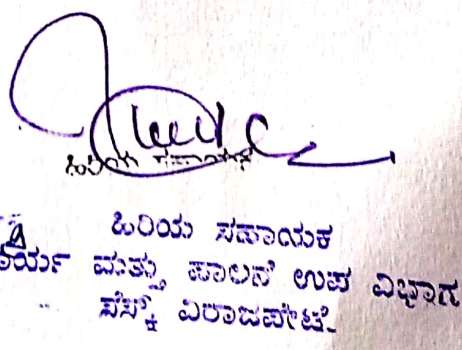 ಹಿರಿಯ ಸಹಾಯಕ
ಹಿರಿಯ ಸಹಾಯಕ
ರ್ಯ ಮತ್ತು ಪಾಲನೆ ಉಪ ವಿಭಾಗ
ಸೆಸ್ಕ್ ವಿರಾಜಪೇಟೆ.